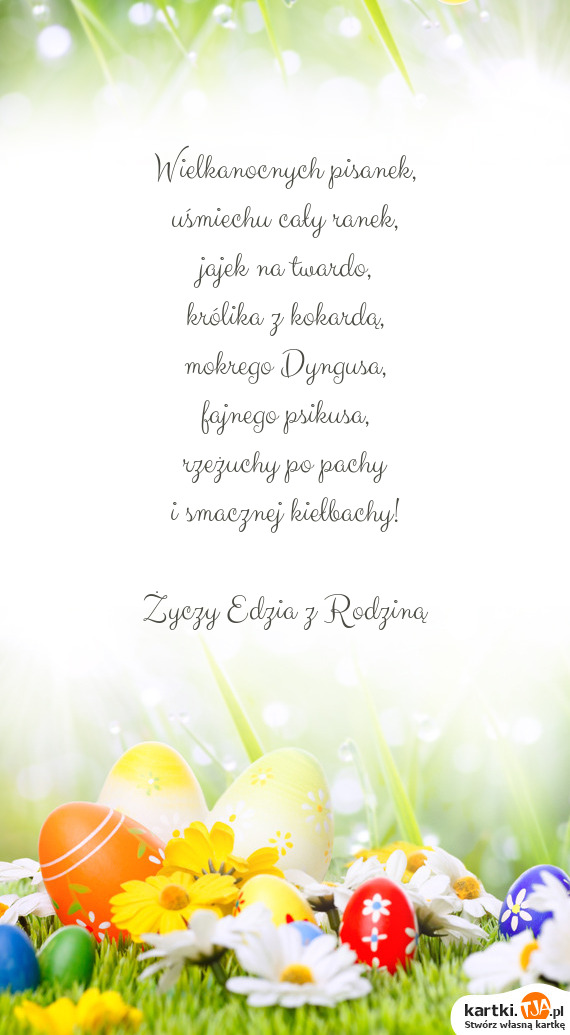 Wielkanocnych pisanek,
uśmiechu cały ranek,
jajek na twardo,
królika z kokardą,
mokrego Dyngusa,
fajnego psikusa,
rzeżuchy po pachy
i smacznej kiełbachy!
Życzy Edzia z Rodziną
kartki.TJA.pl
Stwórz własną kartkę